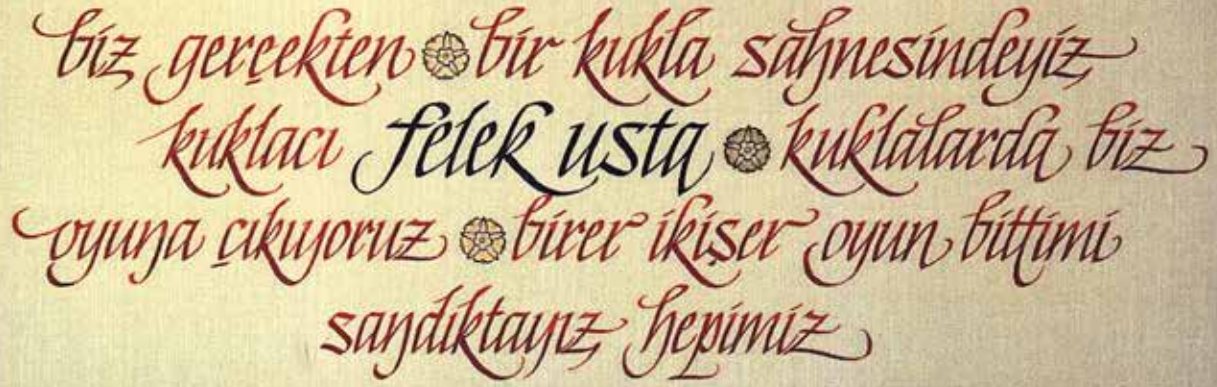 biz gerçekten bir kukla sahnesindeyiz
kuklacı felek usta kuklalarda biz
oyuna çıkıyoruz birer ikişer oyun bittimi
sandıktayız hepimiz